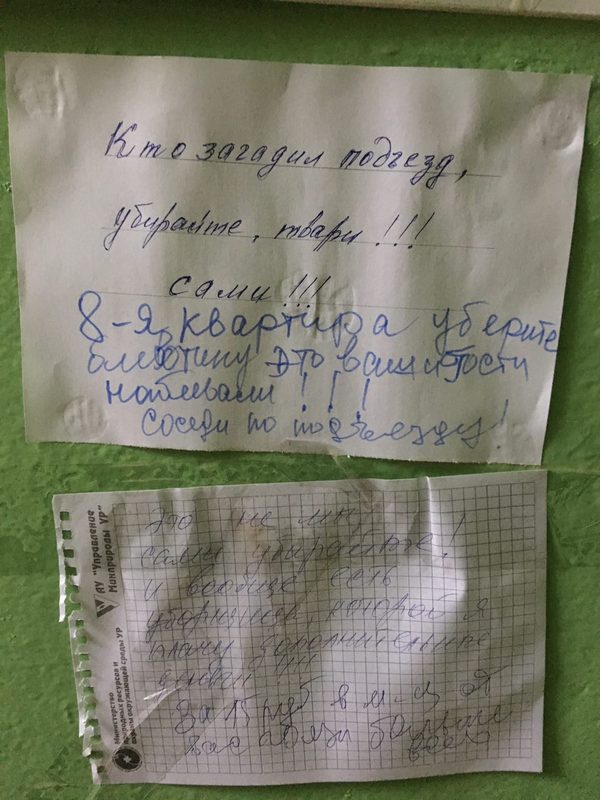 Кто загадил подъезд,
убирайте, твари!!!
сами!!!
8-я квартира уберите
блевотину это ваши гости
наблевали!!!
соседи по подъезду!
АУ "Управление
Минприроды УР"
Министерство
природных ресурсов и
охраны окружающей среды УР
Это не мы
сами убирайте!
и вообще есть
уборщица, которой я
плачу дополнительные
деньги
За 15 руб в м-ц от
вас грязи больше
всего